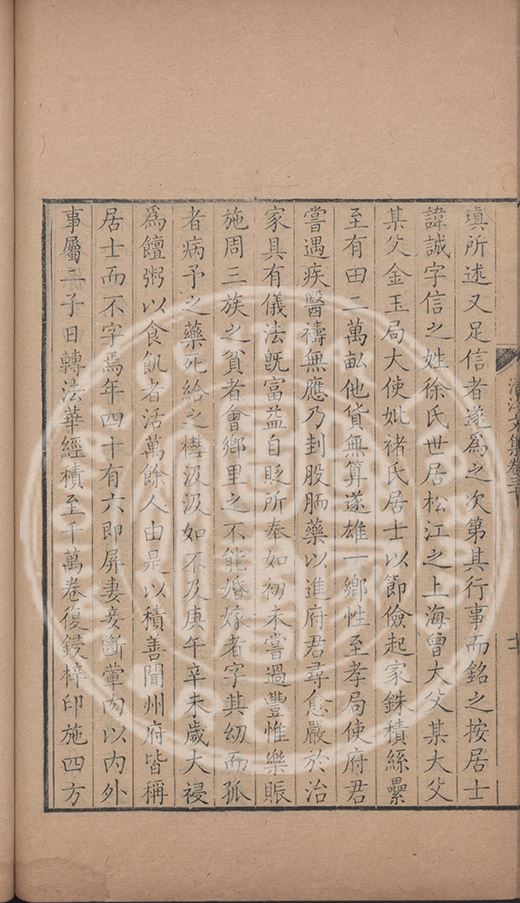 瑱所述又足信者遂為之次第其行事而銘之按居士
諱誠字信之姓徐氏世居松江之上海曾大父某大父
某父金玉局大使妣褚氏居士以節儉起家銖積絲纍
至有田二萬畝他貨無算遂雄一鄉性至孝局使府君
嘗遇疾醫禱無應乃刲股胹藥以進府君尋愈嚴於治
家具有儀法既富益自貶所奉如初未嘗過豐惟樂賑
施周三族之貧者會鄉里之不能婚嫁者字其幼而孤
者病予之藥死給之槥汲汲如不及庚午辛未歲大祲
為饘粥以食飢者活萬餘人由是以積善聞州府皆稱
居士而不字焉年四十有六即屏妻妾斷葷肉以內外
事屬二子日轉法華經積至千萬卷復鋟梓印施四方